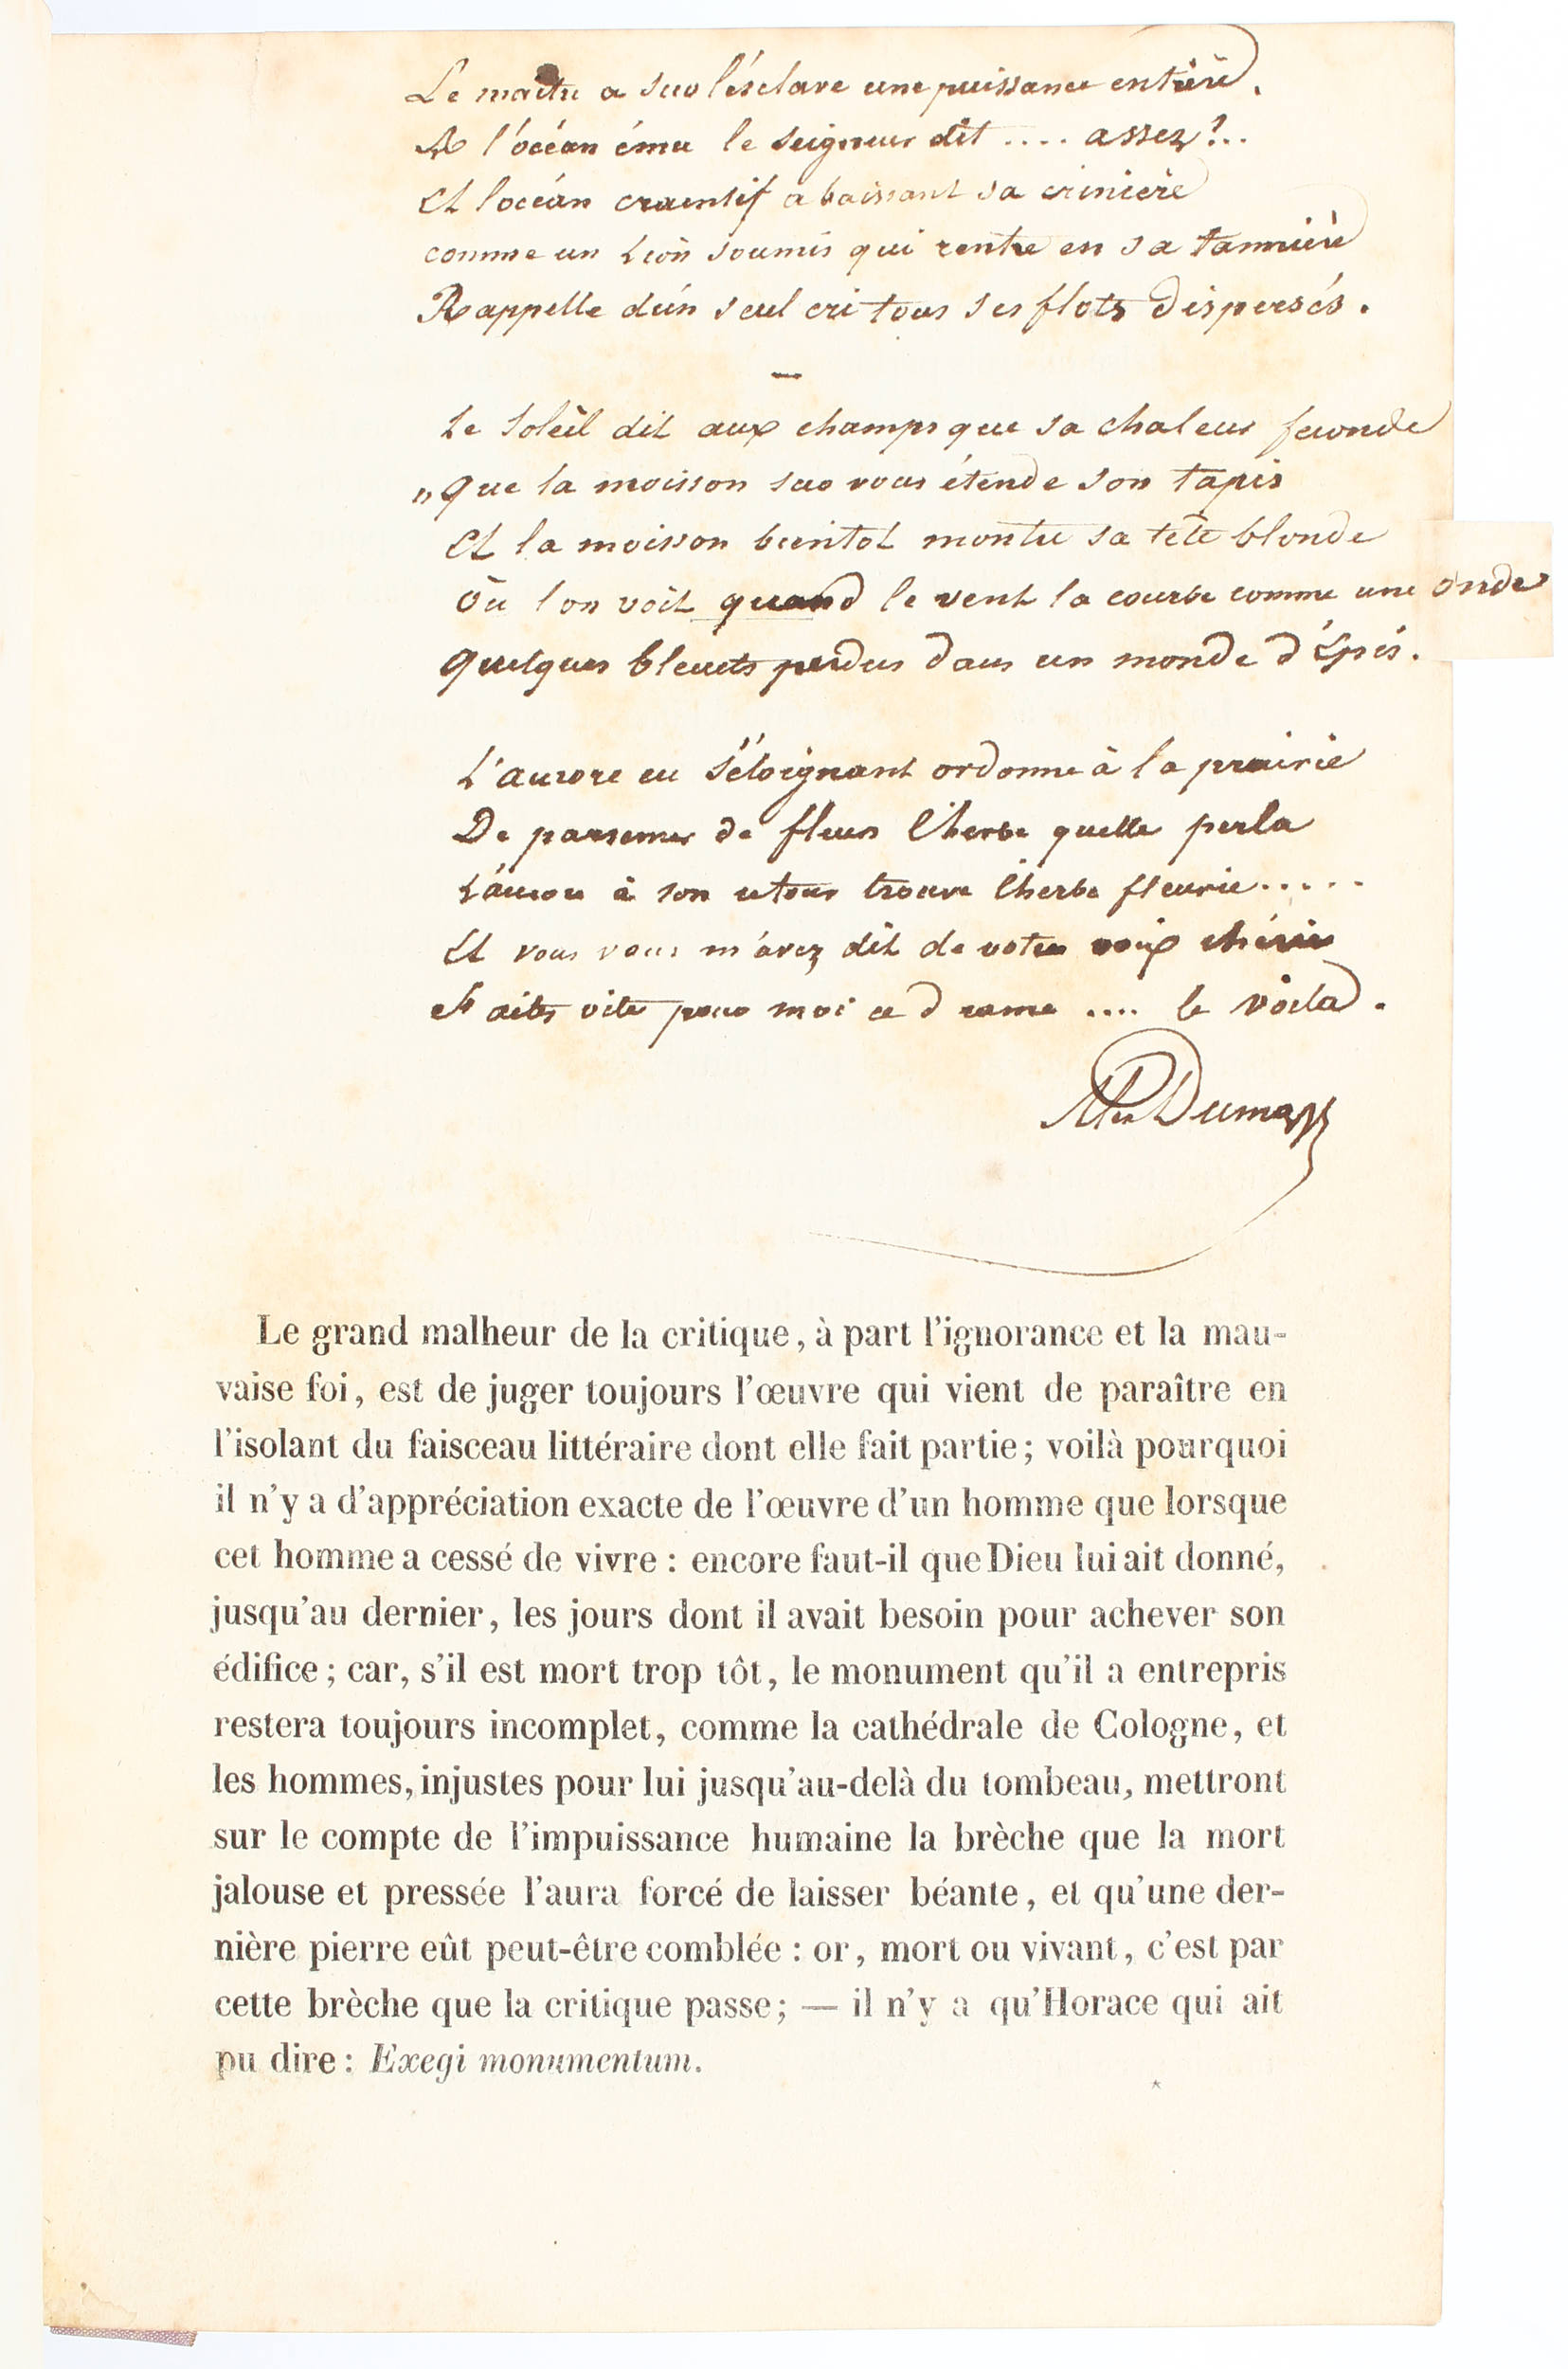 Le maitre a sur l'ésclave une puissance entière.
A l'océan ému le seigneur dit .... assez!..
Et l'océan craintif abaissant sa crinière
comme un Lion soumis qui rentre en sa tannière
Rappelle d'un seul cri tous ses flots dispersés.
—
Le soleil dit aux champs que sa chaleur feconde
„ que la moisson sur vous étende son tapis
Et la moisson bientot montre sa tête blonde
Où l'on voit quand le vent la courbe comme une onde
quelques bleuets perdus dans un monde d'épis.
L'aurore en s'éloignant ordonne à la prairie
De parsemer de fleurs l'herbe quelle perla
L'aurore à son retour trouve l'herbe fleurie.....
Et vous vous m'avez dit de votre voix chérie
Faites vite pour moi ce drame .... le voila.
Alex Dumas
Le grand malheur de la critique, à part l'ignorance et la mau-
vaise foi, est de juger toujours l'œuvre qui vient de paraître en
l'isolant du faisceau littéraire dont elle fait partie; voilà pourquoi
il n'y a d'appréciation exacte de l'œuvre d'un homme que lorsque
cet homme a cessé de vivre : encore faut-il que Dieu lui ait donné,
jusqu'au dernier, les jours dont il avait besoin pour achever son
édifice; car, s'il est mort trop tôt, le monument qu'il a entrepris
restera toujours incomplet, comme la cathédrale de Cologne, et
les hommes, injustes pour lui jusqu'au-delà du tombeau, mettront
sur le compte de l'impuissance humaine la brèche que la mort
jalouse et pressée l'aura forcé de laisser béante, et qu'une der-
nière pierre eût peut-être comblée : or, mort ou vivant, c'est par
cette brèche que la critique passe; — il n'y a qu'Horace qui ait
pu dire : Exegi monumentum.